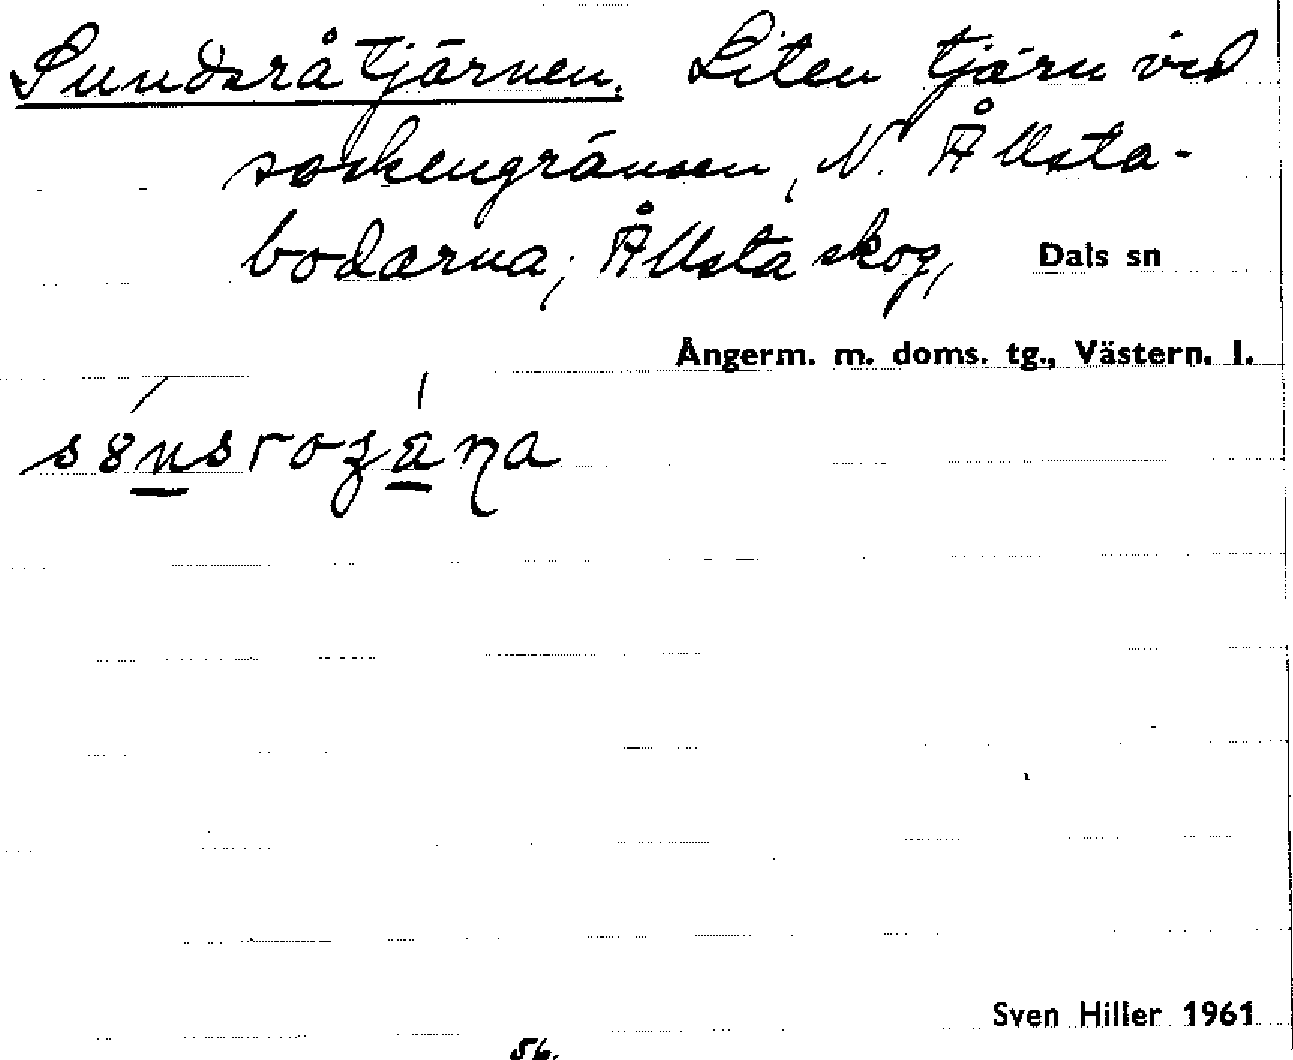 Sundsråtjärnen. Liten tjärn vid
sockengränsen, N. Ållsta-
bodarna, Ållsta skog, Dals sn
Ångerm. m. doms. tg., Västern. l.
Sven Hiller 1961
56.